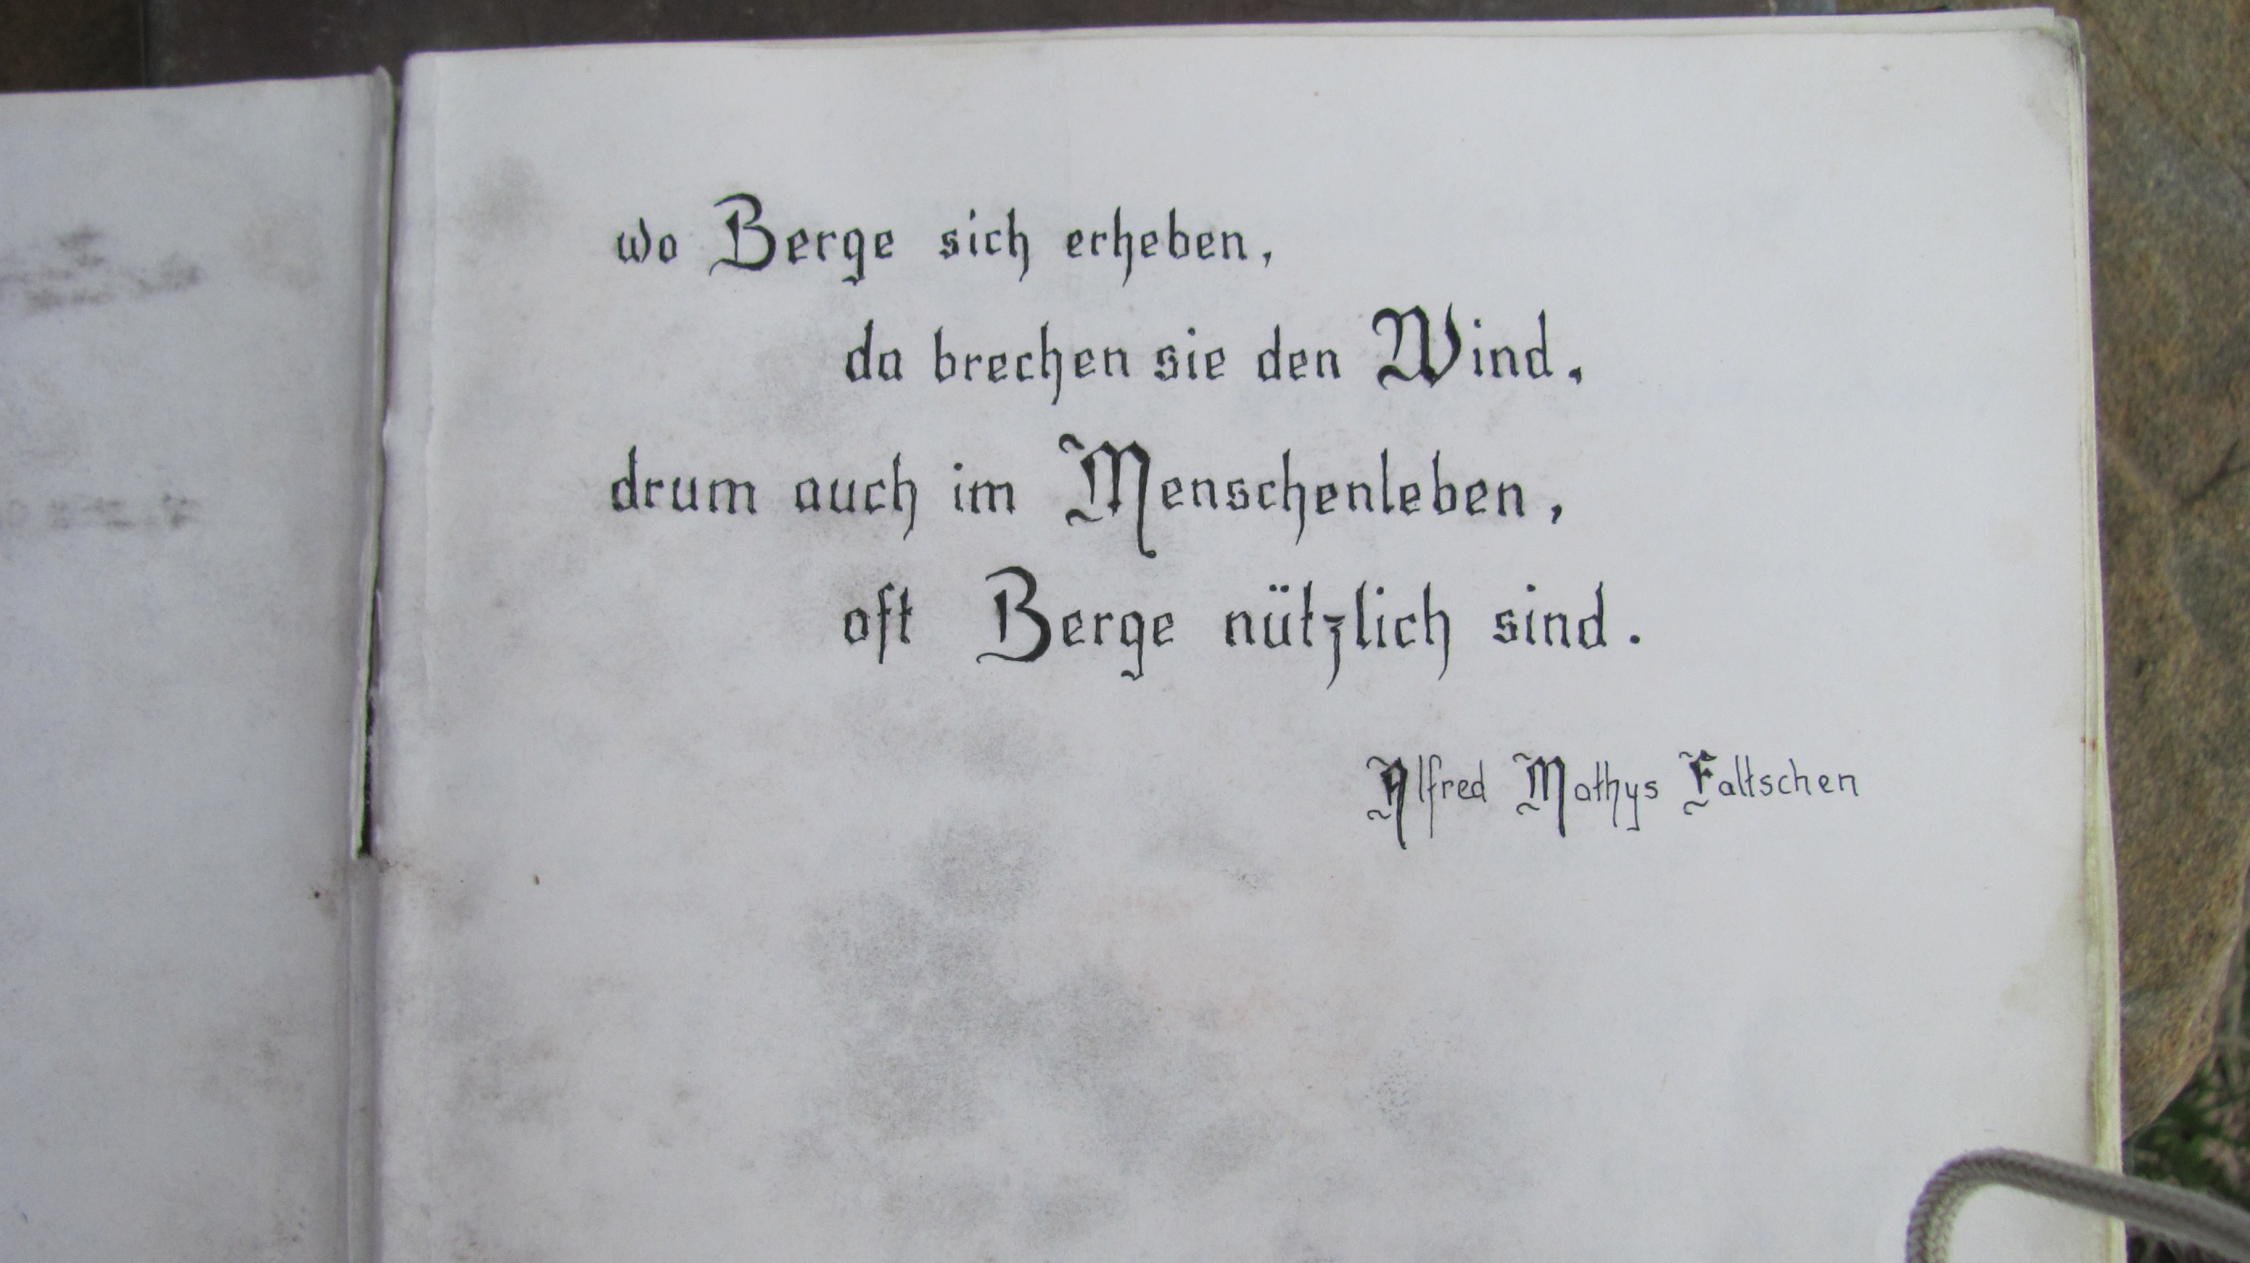 wo Berge sich erheben,
da brechen sie den Wind,
drum auch im Menschenleben,
oft Berge nützlich sind.
Alfred Mathys Faltschen